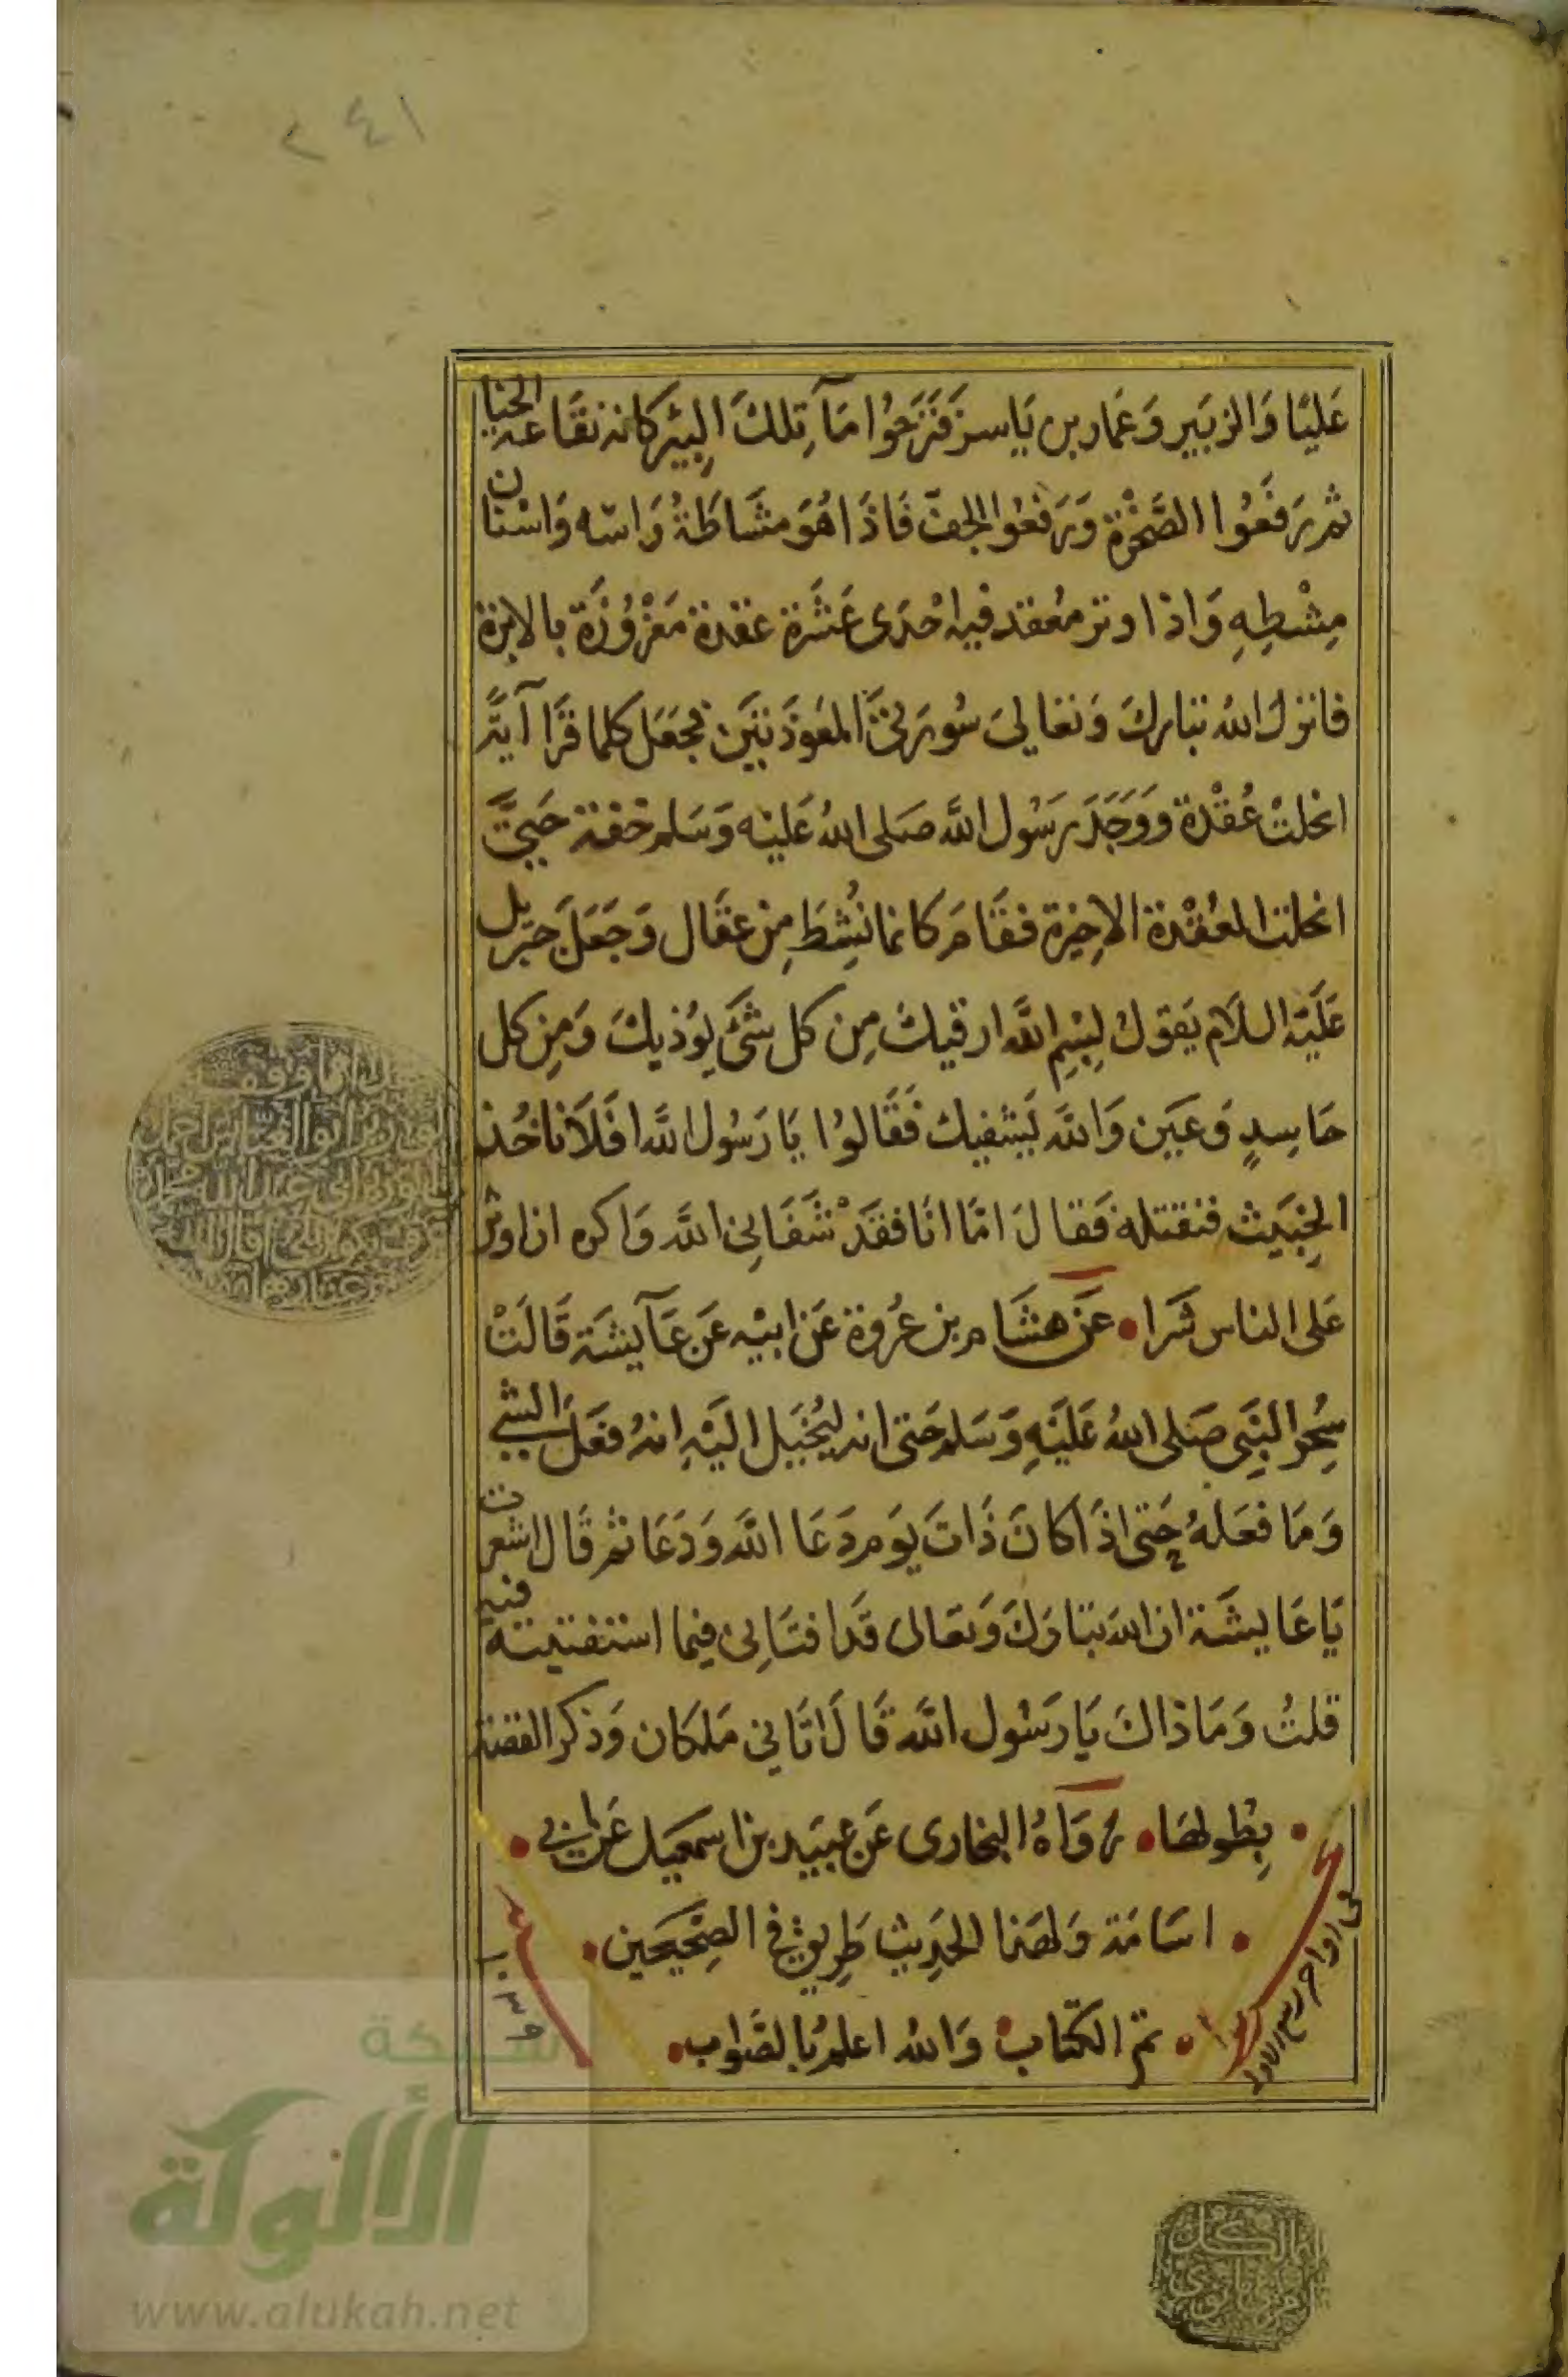 ٢٤١
عَليّا وَالزبَير وَعَمار بن يَاسر فَنَزَحُوا مَآ تِلكَ البِير كانه نقَاعة الحنا
ثم رَفَعُوا الصَّخْرة وَرَفعُوا الجف فَاذَا هُوَ مشَاطَةُ رَاسه وَاسْنان
مِشْطِهِ وَاذا وتر مُعقد فيه احْدَى عَشَرة عقدة مَغْرُوزَة بالابرة
فانزل الله تبارك وَتعالى سُورتى المعَوذَتَين فجَعَل كلما قرَا آية
انحلتْ عُقْدة وَوَجَدَ رَسُول الله صَلى اللهُ عَليْه وَسَلم خفة حَتى
انحلت العُقْدة الاخِيرة فقَامَ كانما نُشِطَ مِن عقَال وَجَعَلَ جبرِيل
عَليَه السلام يَقول بِسْمِ اللَّه ارقيك مِن كل شَئ يوُذيك وَمِن كل
حَاسِدٍ وَعَين وَاللَّه يَشفيك فَقَالوُا يَا رَسُول اللَّه افَلاَ ناخُذ
الخِبَيث فنقتله فَقال امَّا انَا فقدْ شَفَانِى اللَّه وَاكره ان اوثر
عَلى الناس شَرا • عَن هشَام بن عُرْوة عَن ابيْه عَن عَآيشَة قَالَتْ
سُحِر النبَى صَلى اللهُ عَليَهِ وَسَلم حَتى انه ليُخيَل اليَهِ انهُ فعَلَ الشى
وَمَا فعَلهُ حَتى اذَا كانَ ذَاتَ يَوم دَعَا اللَّه وَدَعَا ثم قَال اشعرت
يَا عَايشَة ان الله تبَارَكَ وَتعَالى قَد افتَانِى فِيما استفتيته فيه
قلتُ وَمَا ذاكَ يَا رَسُول اللَّه قَالَ اتَانِى مَلكَان وَذكر القصة
• بِطُولهَا • رَوَاهُ البخارى عَن عبيَد بن اسمعيَل عَن ابى •
• اسَامَة وَلهَذا الحَدِيث طَرِيق فى الصِّحِيحَين •
• تم الكتاب • وَالله اعلمُ بالصَّواب •
فى اواخر ربيع الاول
شبكة
الألوكة
www.alukah.net